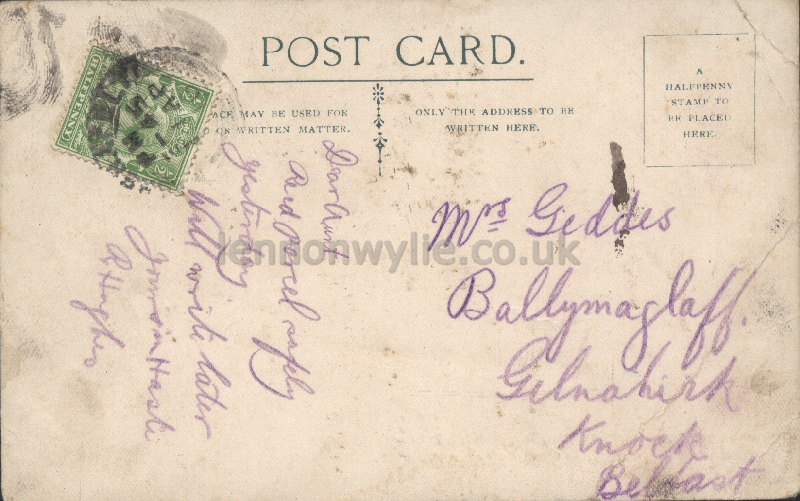 POST CARD.
ACE MAY BE USED FOR
OR WRITTEN MATTER.
ONLY THE ADDRESS TO BE
WRITTEN HERE.
A
HALFPENNY
STAMP TO
BE PLACED
HERE.
Dear Aunt
Recd Parcel safely
yesterday
Will write later
Yours in Haste
R Hughes
Mrs Geddes
Ballymaglaff.
Gilnahirk
Knock
Belfast
lennonwylie.co.uk